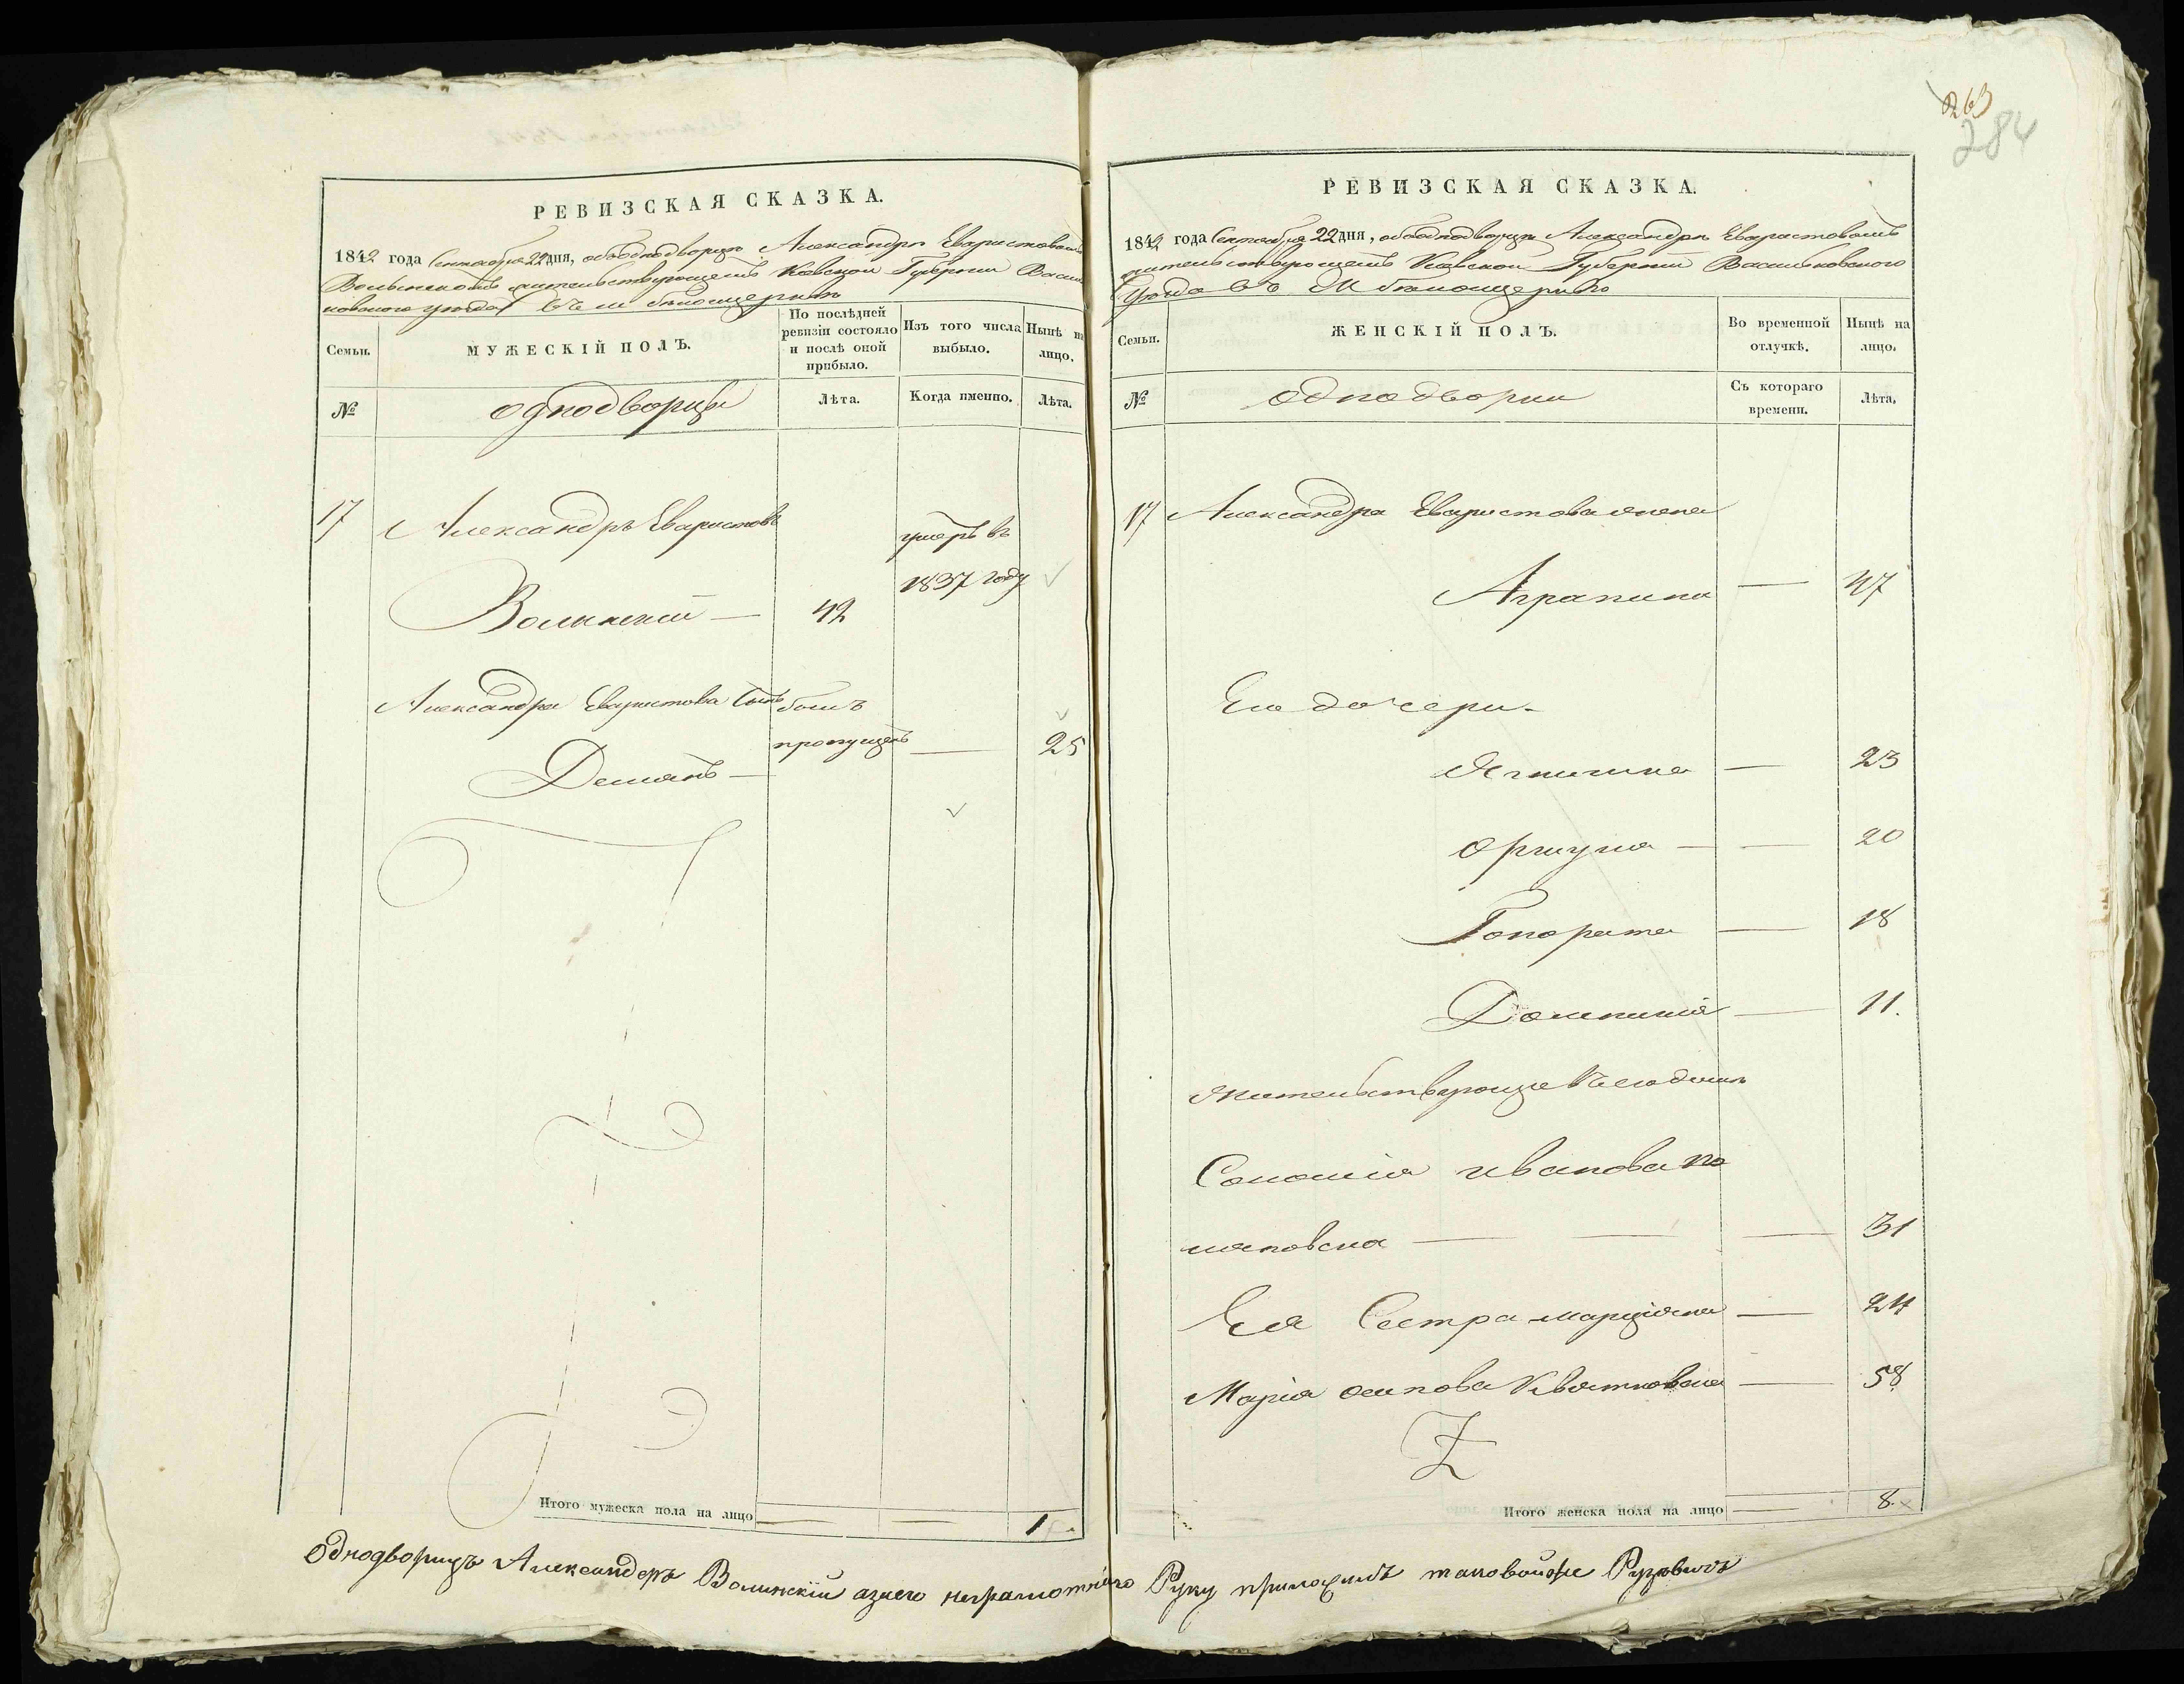 263
284
РЕВИЗСКАЯ СКАЗКА.
1842 года Сентября 22 дня, об однодворцѣ Александрѣ Еваристовомъ
Волынскомъ жительствующемъ Кіевской Губерніи Василь
ковского уѣзда въ м Бѣлоцерквѣ
Семьи.
МУЖЕСКІЙ ПОЛЪ.
По послѣдней ревизіи состояло и послѣ оной прибыло.
Изъ того числа выбыло.
Нынѣ на лицо.
№
однодворцы
Лѣта.
Когда именно.
Лѣта.
17 Александръ Еваристовъ
умеръ въ
1837 году
Волынскій — 42
Александра Еваристова сынъ былъ
пропущенъ — 25
Демянъ —
Итого мужеска пола на лицо — — 1
РЕВИЗСКАЯ СКАЗКА.
1842 года Сентября 22 дня, об однодворцѣ Александрѣ Еваристовомъ
жительствующемъ Кіевской Губерніи Васильковского
Уѣзда въ М Бѣлоцерквѣ
Семьи.
ЖЕНСКІЙ ПОЛЪ.
Во временной отлучкѣ.
Нынѣ на лицо.
№
однодворки
Съ котораго времени.
Лѣта.
17 Александра Еваристова жена
Аграпина — 47
Его дочери.
23
20
Гонората — 18
Доминикія — 11.
жительствующіе въ его домѣ
Соломія Иванова
31
Ея Сестра Марціяна — 24
Марія Осипова Квятковска — 58
Итого женска пола на лицо — 8
Однодворицъ Александеръ Волинскій азаего неграмотнаго Руку приложилъ таковойже